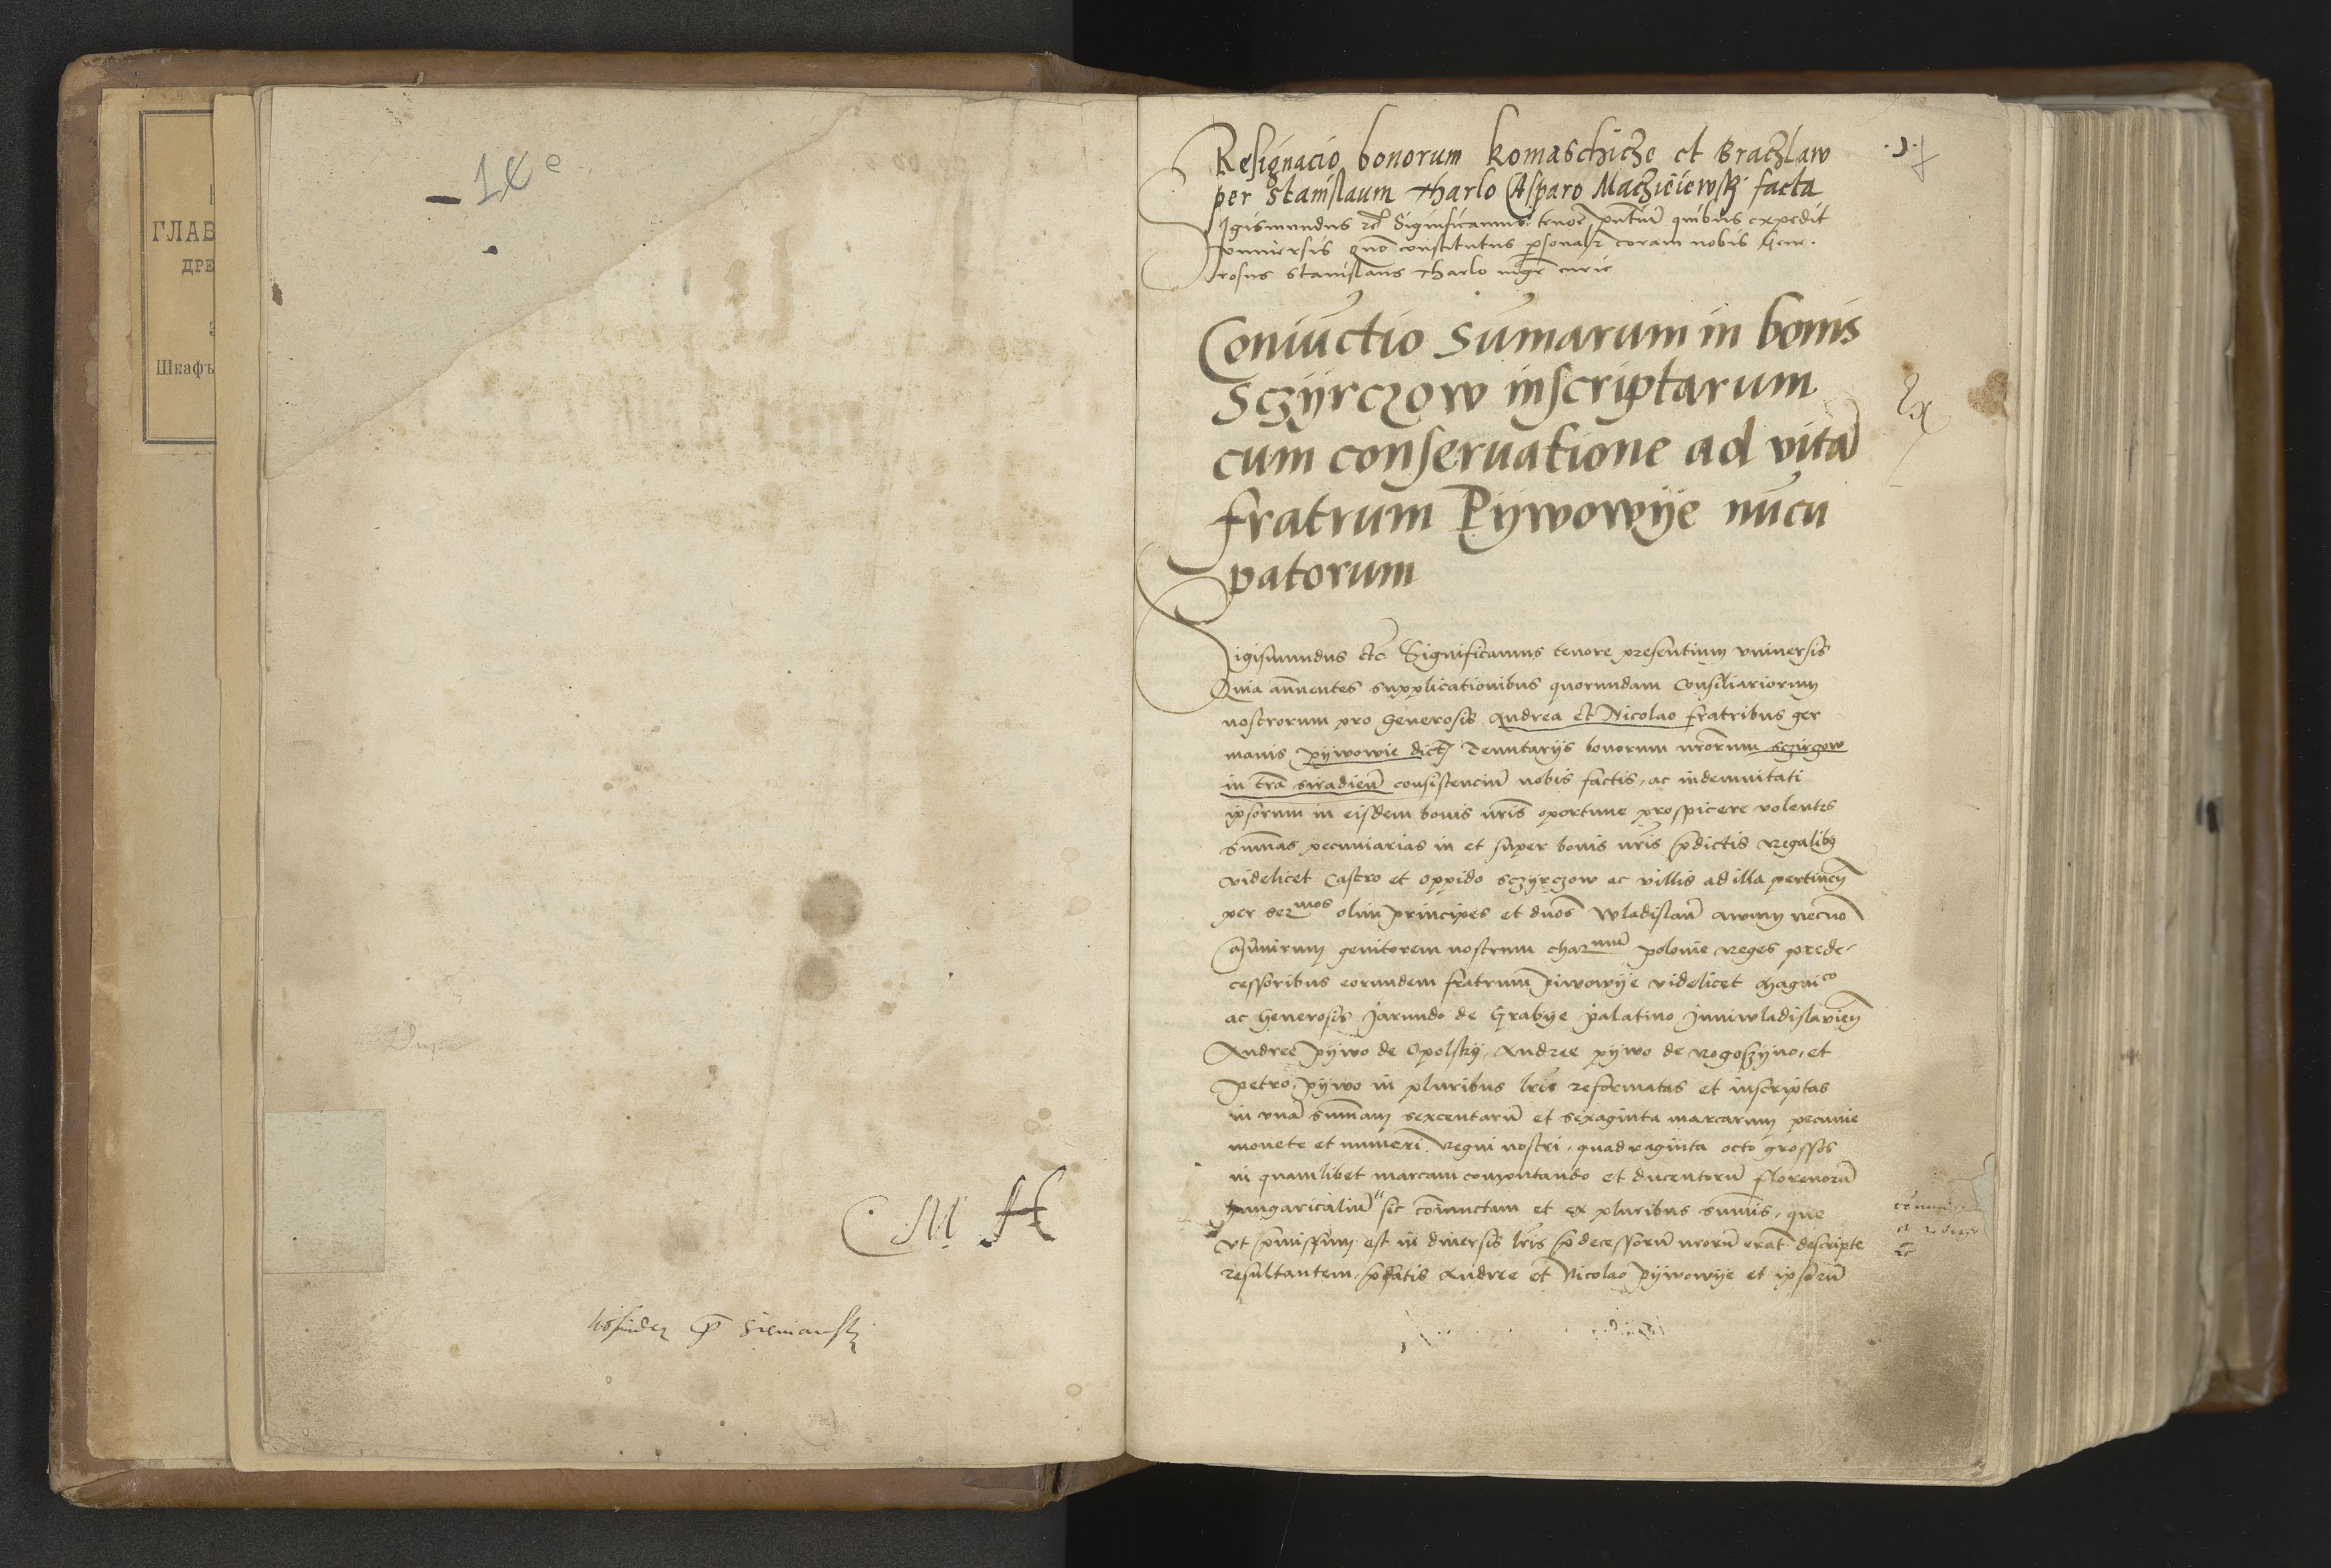 ГЛАВ
ДРЕ
Шкафъ
M H
Resignacio bonorum komaschicze et Braczlaw
per Stanislaum Tharlo Casparo Maczieiewskj facta
Sigismundus etc Significamus tenore pntiũ quibus expedit
vniuersis quõ constitutus psonalr coram nobis Gene.
rosus Stanislaus Tharlo mgr̃ curie
Coniũctio Sumarum in bonis
Sczÿrczow inscriptarum
cum conseruatione ad vitã
fratrum Pÿwowÿe nũcu
patorum
Sigismundus etc̃ Significamus tenore presentium vniuersis
Quia annuentes supplicationibus quorundam Consiliariorum
nostrorum pro Generosis Andrea et Nicolao fratribus ger
manis pÿwowie dict Tenutarÿs bonorum nrorum sczirzow
in tr̃a siradieñ consistenciũ nobis factis, ac indemnitati
ipsorum in eisdem bonis nr̃is oportune prospicere volentes
sum̃as pecuniarias in et super bonis nr̃is p̃dictis regalibꝫ
videlicet Castro et oppido sczÿrczow ac villis ad illa pertineñ
per sermos olim principes et dnõs wladislaũ auum necnõ
Casimirum genitorem nostrum charmũ polonie reges prede-
cessoribus eorundem fratrum piwowÿe videlicet Magnico
ac Generosis Jarando de Grabÿe palatino Juniwladislauieñ
Andree pÿwo de Opolskÿ, Andree pÿwo de rogoszÿno, et
petro, pÿwo in pluribus lr̃is reformatas et inscriptas
in vnã sum̃am sexcentarũ et sexaginta marcarum pecunie
monete et numeri regni nostri, quadraginta octo grossos
in quamlibet marcam computando et ducentorũ florenorũ
hungaricaliũ sic coniunctam et ex pluribus sum̃is, que
vt p̃missum est in diuersis lr̃is p̃decessorũ nrorũ erãt descripte
resultantem, p̃fatis Andree et Nicolao pÿwowÿe et ipsorũ